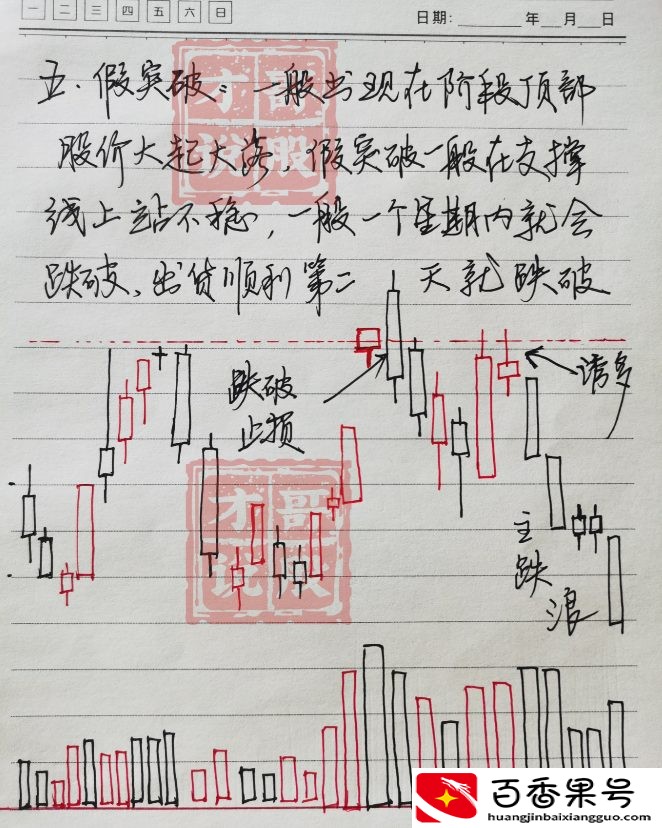 一 二 三 四 五 六 日
日期: 年 月 日
五.假突破:一般出现在阶段顶部
股价大起大落,假突破一般在支撑
线上站不稳,一般一个星期内就会
跌破、出货顺利第二 天就跌破
跌破
止损
诱多
主
跌
浪
才哥
说股
才哥
说股
百香果号
huangjinbaixiangguo.com